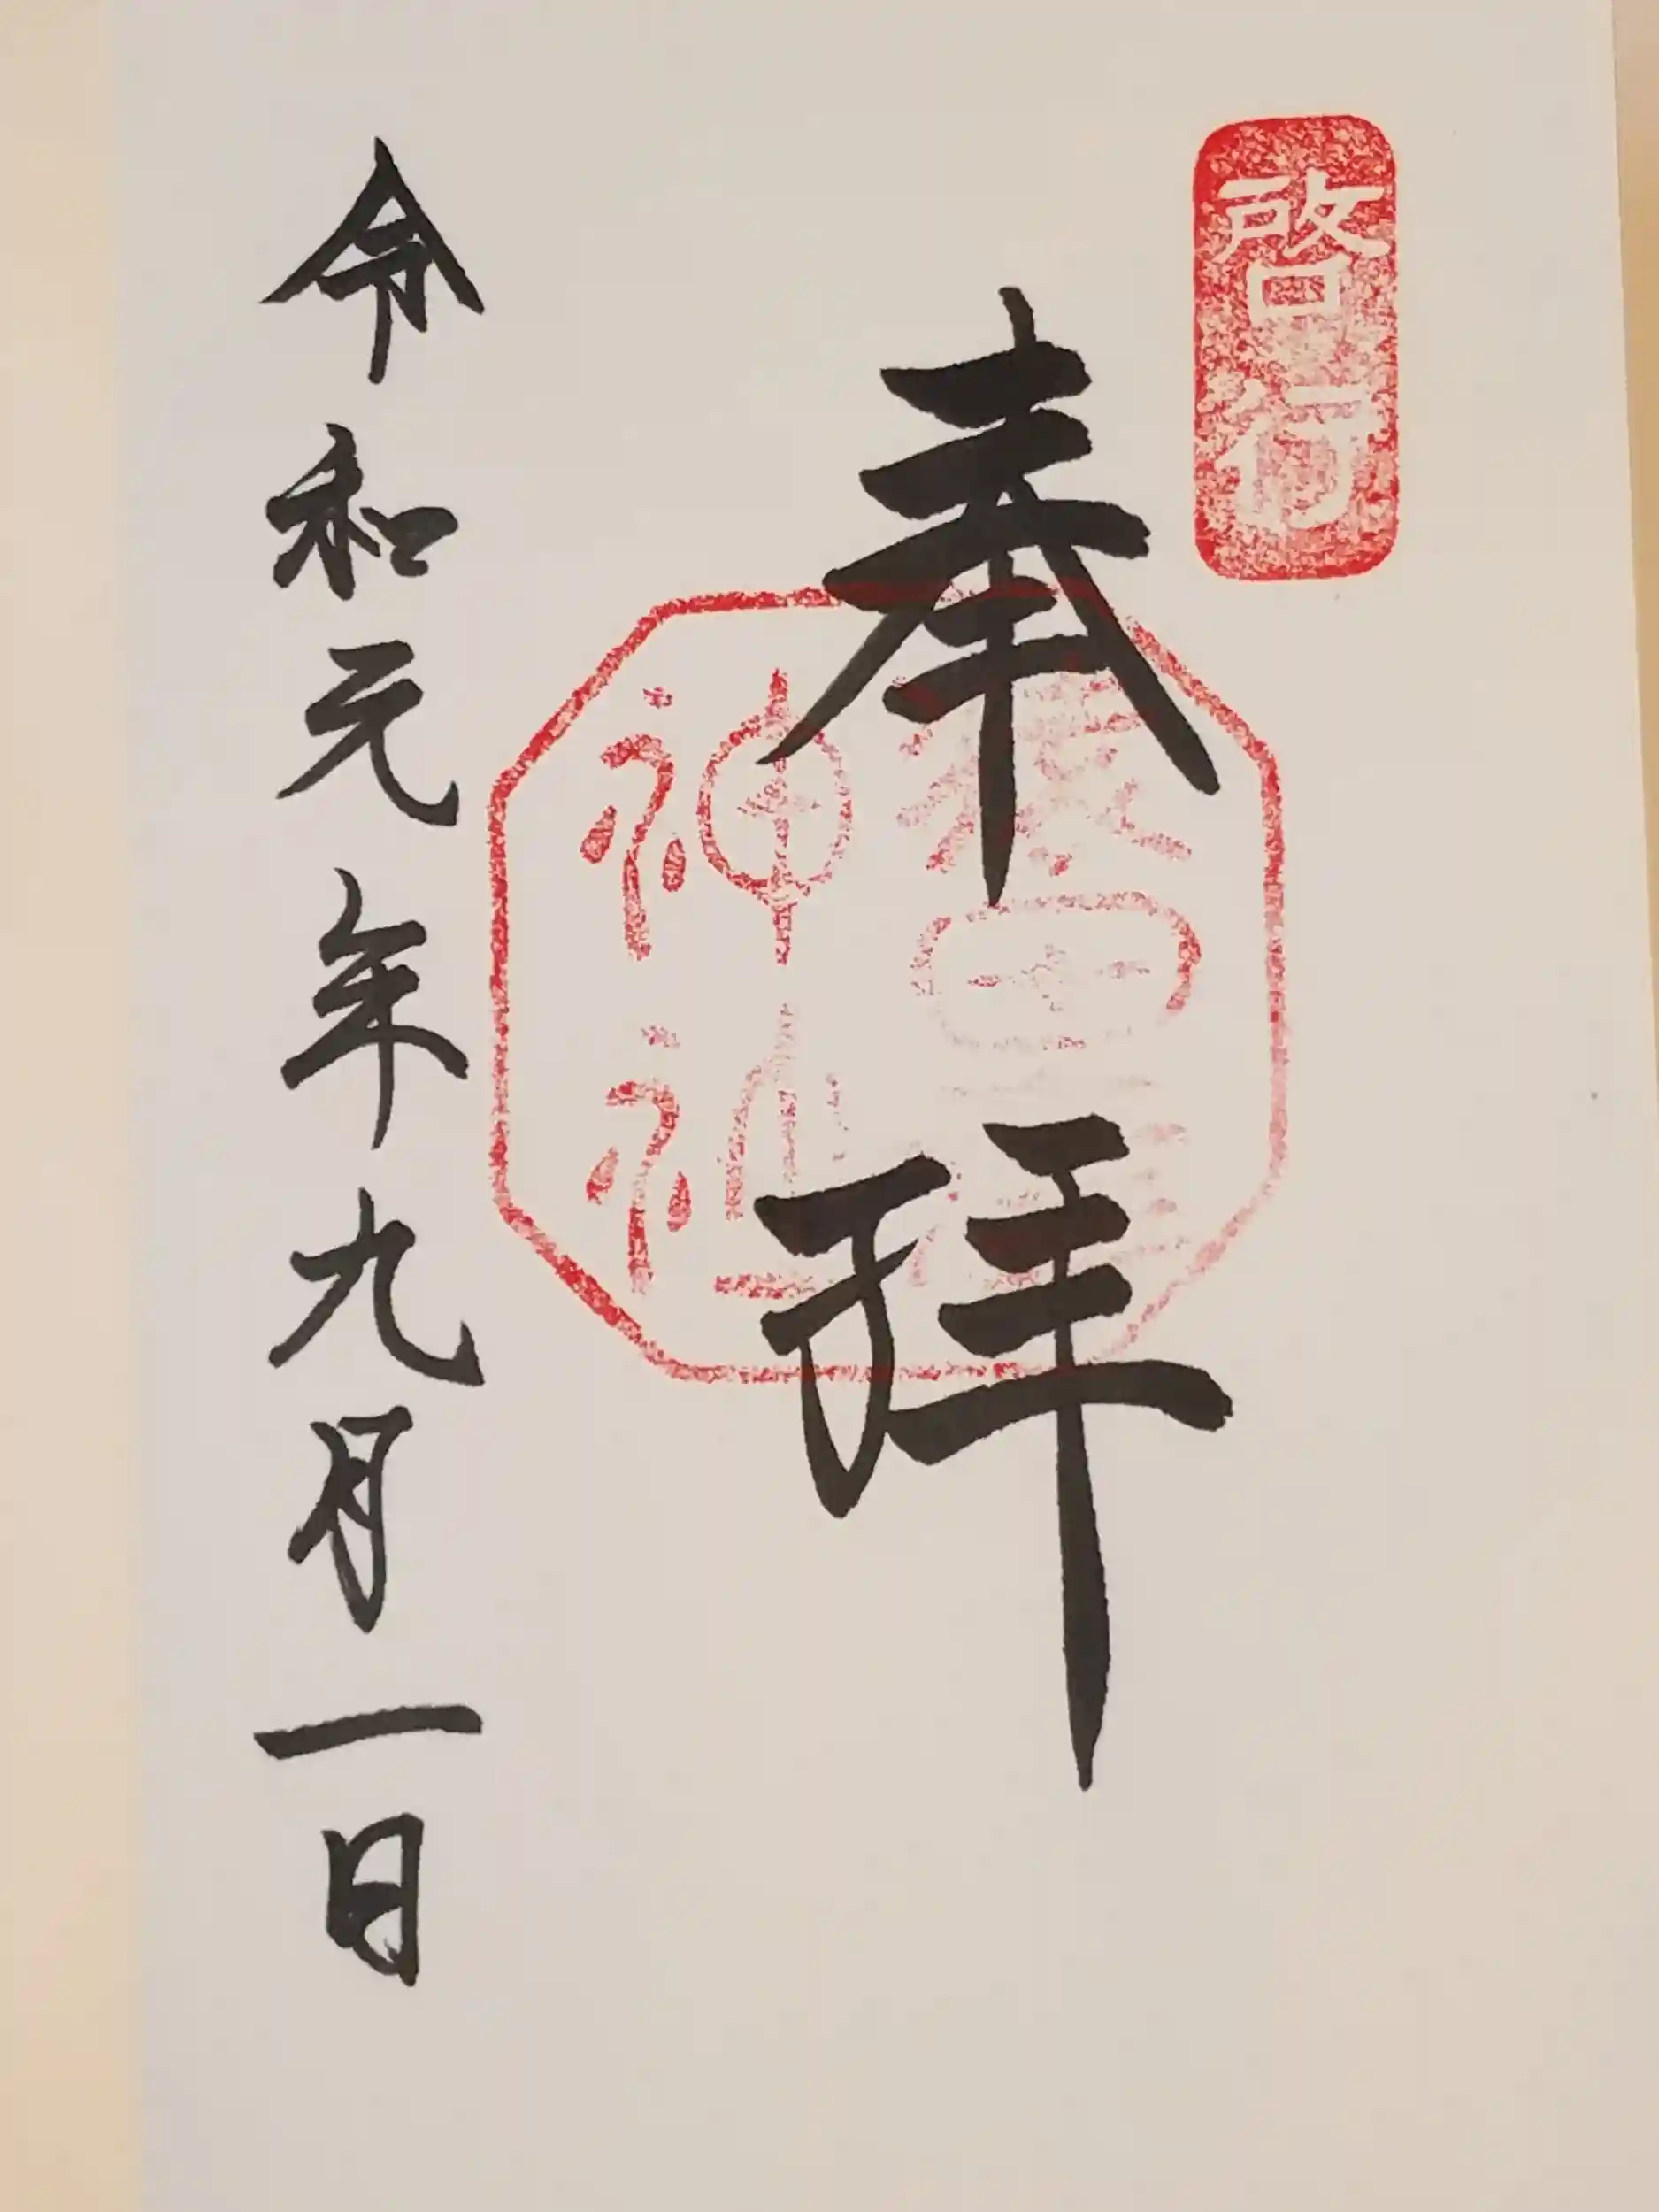 啓行
奉拝
猿田彦
神社
令和元年九月一日